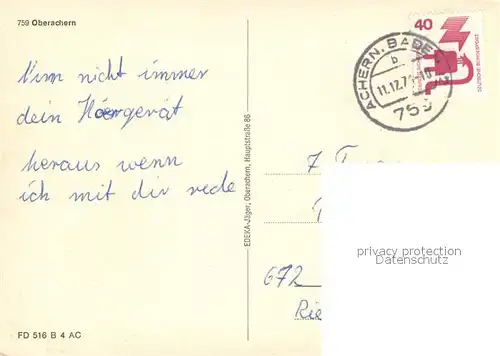 759 Oberachern
Nim nicht immer
dein Hörgerät
heraus wenn
ich mit dir rede
FD 516 B 4 AC
EDEKA-Jäger, Oberachern, Hauptstraße 86
ACHERN, BADEN
b
11.12.7
759
40
DEUTSCHE BUNDESPOST
7 T
672
Rie
privacy protection
Datenschutz